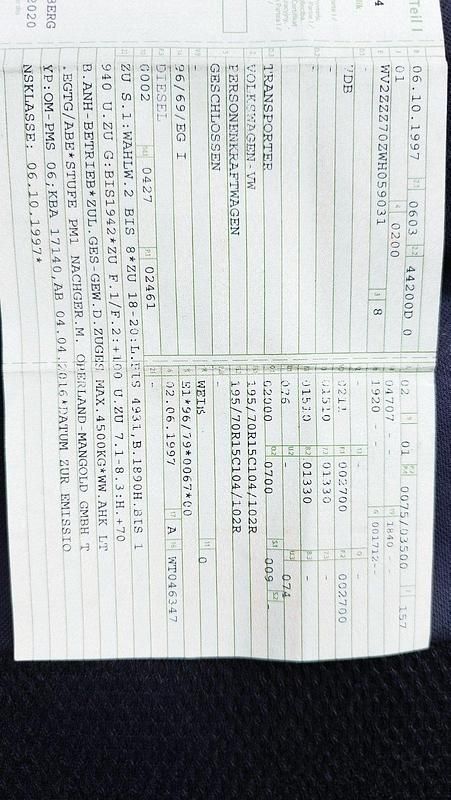 Teil I
06.10.1997 0603 44200D 0
01 0200
WV2ZZZ70ZWH059031 8
7DB
TRANSPORTER
VOLKSWAGEN-VW
PERSONENKRAFTWAGEN
GESCHLOSSEN
96/69/EG I
DIESEL
0002 0427 02461
02 01 0075/03500 157
04707 - 1840 -
1920 - 001712--
002700 002700
01510 01330
01510 01330 -
- - 074
02000 0700 009 -
195/70R15C104/102R
195/70R15C104/102R
WEISS 0
E1*96/79*0067*00
02.06.1997 A WT046347
ZU S.1:WAHLW.2 BIS 8*ZU 18-20:L.BIS 4931,B.1890H.BIS 1
940 U.ZU G:BIS1942*ZU F.1/F.2:+100 U.ZU 7.1-8.3:H.+70
B.ANH-BETRIEB*ZUL.GES-GEW.D.ZUGES MAX.4500KG*WW.AHK LT
.EGTG/ABE*STUFE PM1 NACHGER.M. OPERLAND-MANGOLD GMBH T
YP:OM-PMS 06;KBA 17140,AB 04.04.2016*DATUM ZUR EMISSIO
NSKLASSE: 06.10.1997*
BERG
2020